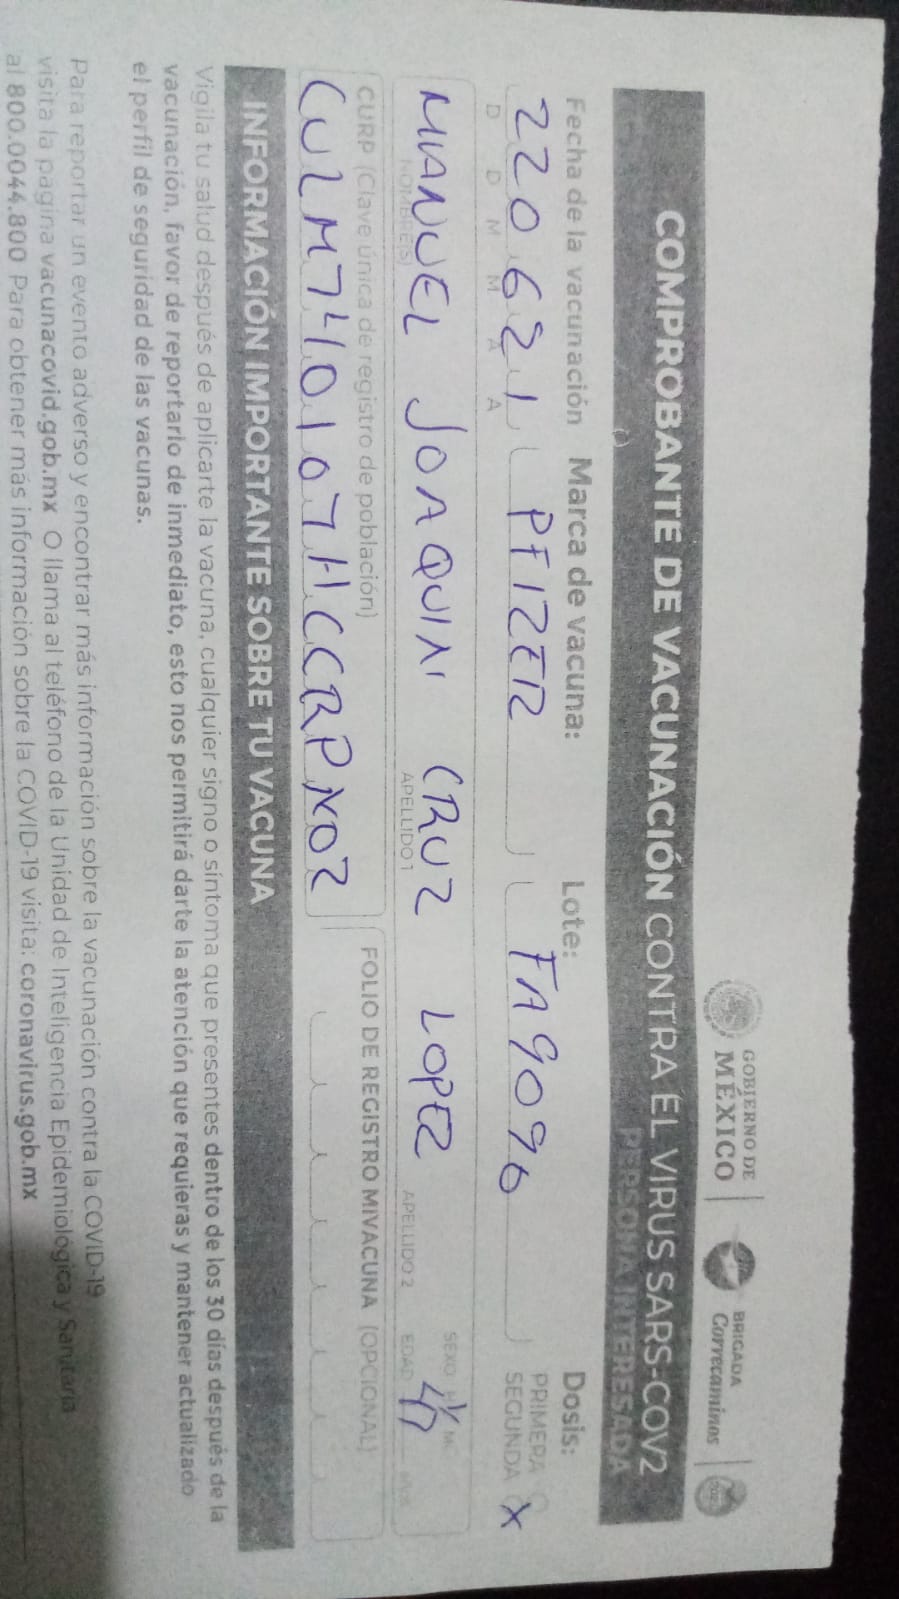 GOBIERNO DE MÉXICO
BRIGADA Correcaminos
COMPROBANTE DE VACUNACIÓN CONTRA EL VIRUS SARS-COV2
PERSONA INTERESADA
Fecha de la vacunación Marca de vacuna: Lote: Dosis:
220621 PFIZER FA9096 PRIMERA
D D M M A A SEGUNDA X
MANUEL JOAQUIN CRUZ LOPEZ 47
NOMBRE(S) APELLIDO 1 APELLIDO 2 EDAD SEXO
CURP (Clave única de registro de población) FOLIO DE REGISTRO MIVACUNA (OPCIONAL)
CULM740107HCCRPN02
INFORMACIÓN IMPORTANTE SOBRE TU VACUNA
Vigila tu salud después de aplicarte la vacuna, cualquier signo o síntoma que presentes dentro de los 30 días después de la
vacunación, favor de reportarlo de inmediato, esto nos permitirá darte la atención que requieras y mantener actualizado
el perfil de seguridad de las vacunas.
Para reportar un evento adverso y encontrar más información sobre la vacunación contra la COVID-19
visita la pagina vacunacovid.gob.mx O llama al teléfono de la Unidad de Inteligencia Epidemiológica y Sanitaria
al 800.0044.800 Para obtener más información sobre la COVID-19 visita: coronavirus.gob.mx